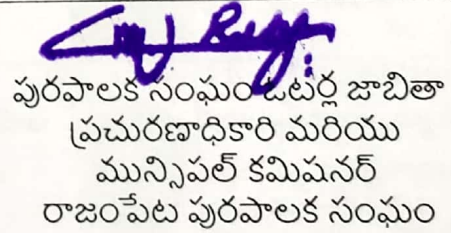 పురపాలక సంఘం ఓటర్ల జాబితా
ప్రచురణాధికారి మరియు
మున్సిపల్ కమిషనర్
రాజంపేట పురపాలక సంఘం